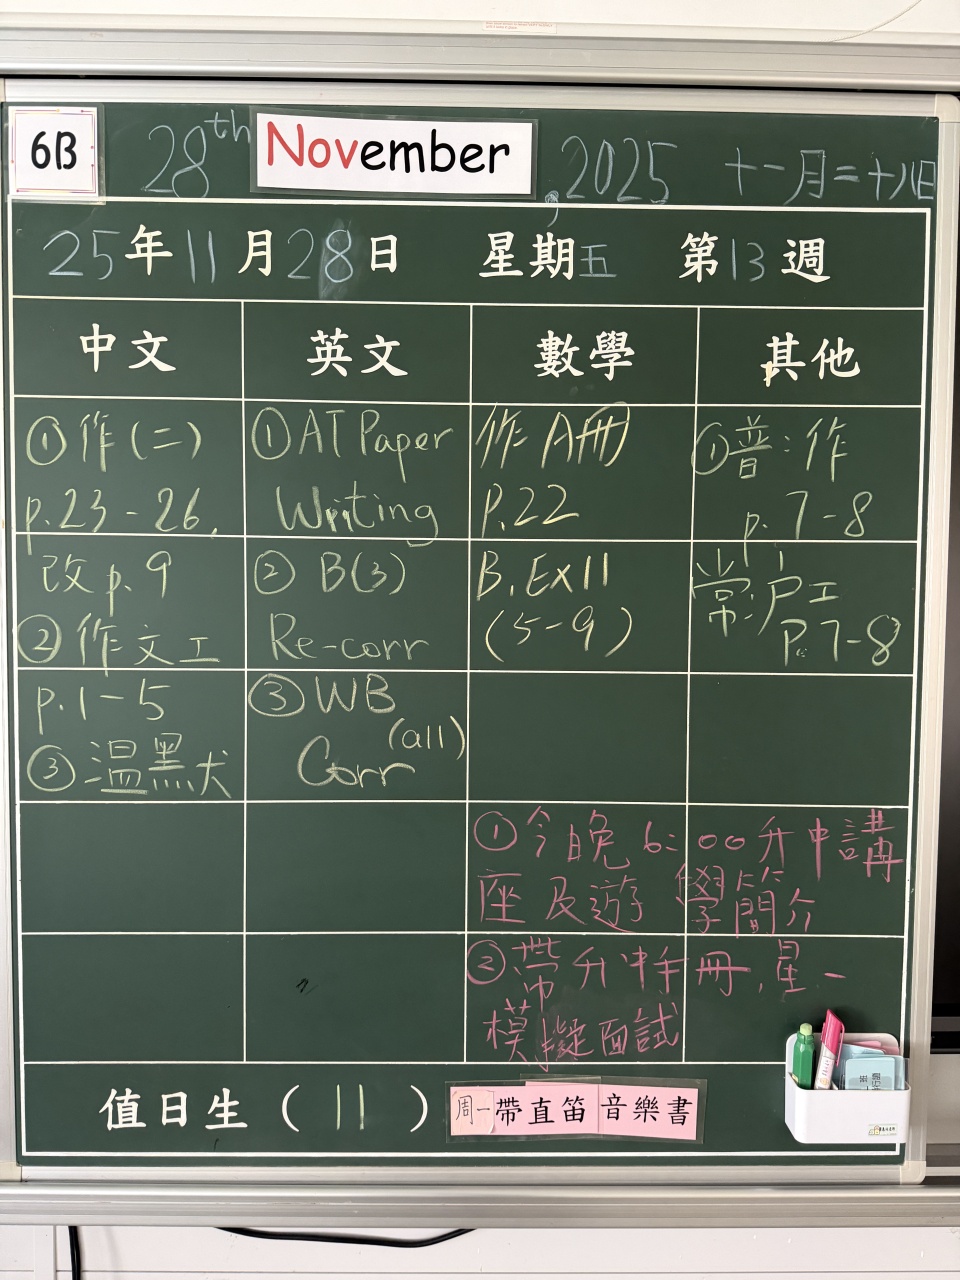 6B
28th November, 2025 十一月二十八日
25年11月28日 星期五 第13週
中文 英文 數學 其他
①作(二)
p.23-26.
改p.9
②作文工
p.1-5
③溫黑犬
①AT Paper
Writing
②B(3)
Re-corr
③WB
(all)
Corr
作A冊
P.22
B.Ex11
(5-9)
①普:作
p.7-8
常:戶工
P.7-8
①今晚6:00升中講
座及遊學簡介
②帶升中手冊,星一
模擬面試
值日生(11)
周一帶直笛 音樂書